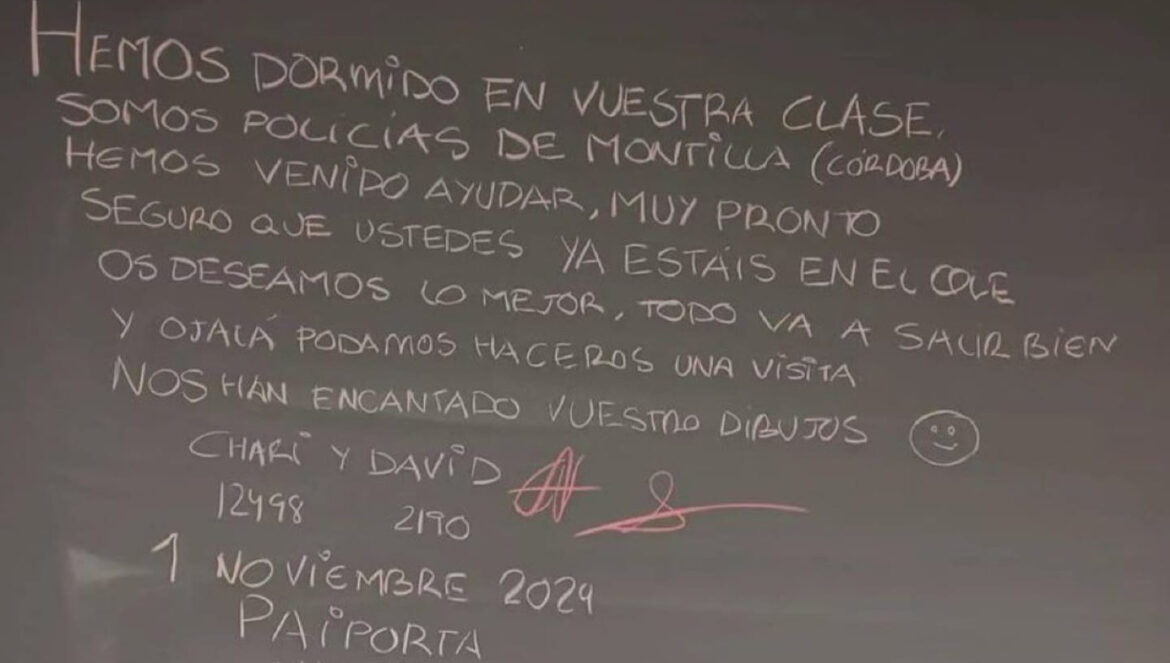 HEMOS DORMIDO EN VUESTRA CLASE.
SOMOS POLICÍAS DE MONTILLA (CÓRDOBA)
HEMOS VENIDO AYUDAR, MUY PRONTO
SEGURO QUE USTEDES YA ESTÁIS EN EL COLE
OS DESEAMOS LO MEJOR, TODO VA A SALIR BIEN
Y OJALÁ PODAMOS HACEROS UNA VISITA
NOS HAN ENCANTADO VUESTRO DIBUJOS
CHARI Y DAVID
12498 2190
1 NOVIEMBRE 2024
PAIPORTA